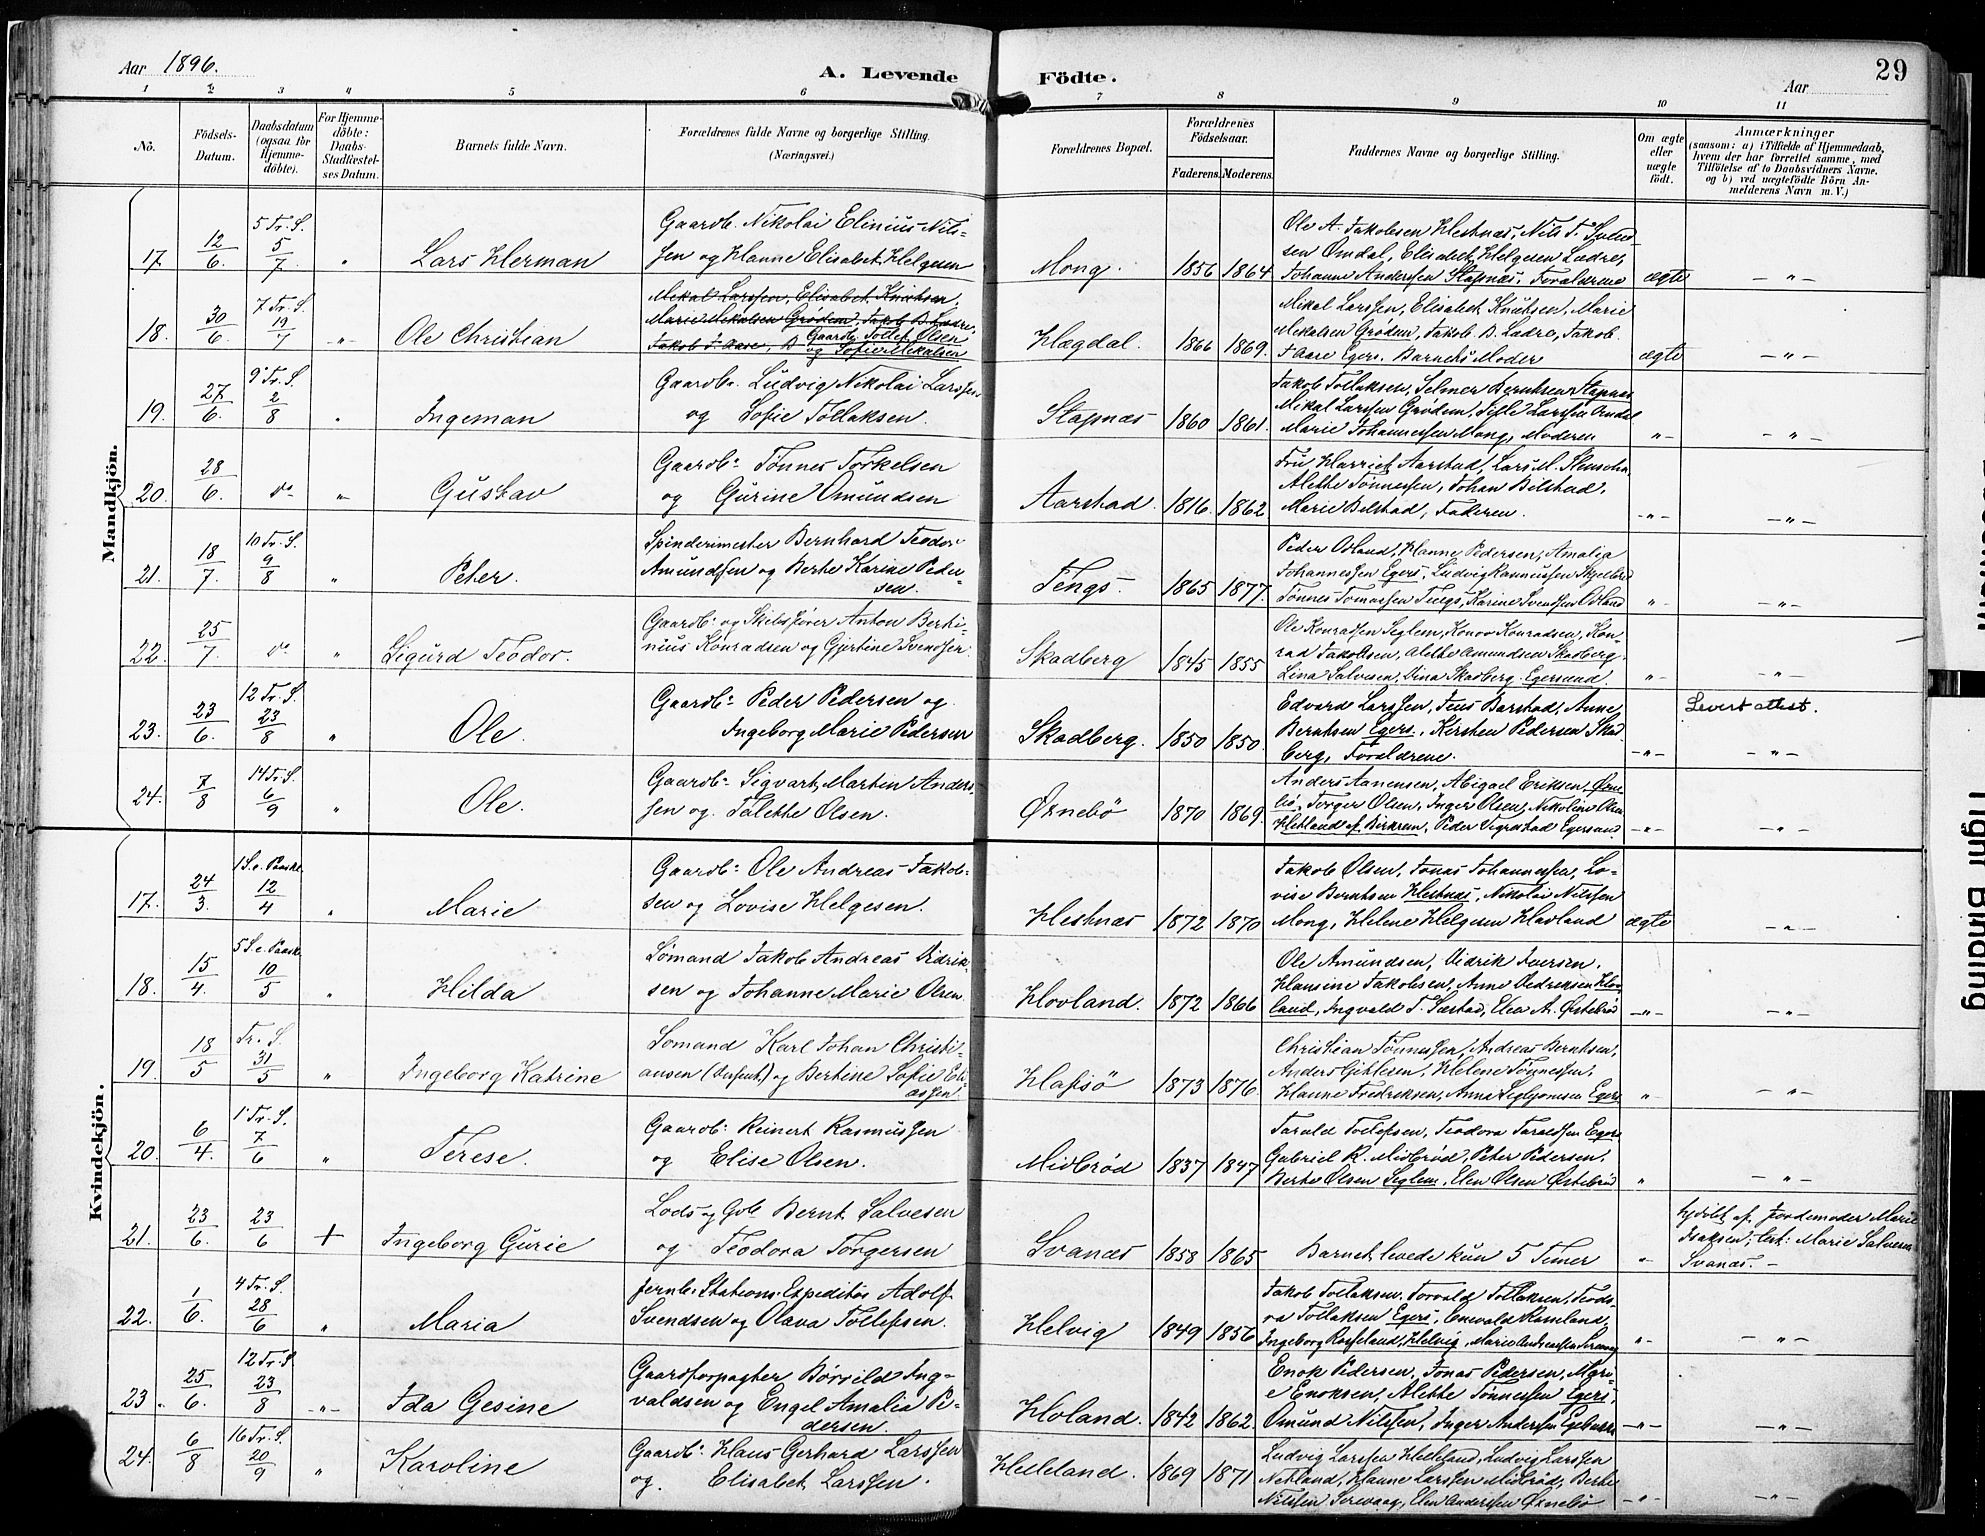 Aar 1896.
A. Levende
Födte.
Aar
29
1 2 3 4 5 6 7 8 9 10 11
No.
Födsels-
Datum.
Daabsdatum
(ogsaa for
Hjemme-
döbte).
For Hjemme-
döbte:
Daabs-
Stadfæstel-
ses Datum.
Barnets fulde Navn.
Forældrenes fulde Navne og borgerlige Stilling.
(Næringsvei.)
Forældrenes Bopæl.
Forældrenes
Födselsaar.
Faderens. Moderens.
Faddernes Navne og borgerlige Stilling.
Om ægte
eller
uægte
födt.
Anmærkninger
(saasom: a) i Tilfælde af Hjemmedaab,
hvem der har forrettet samme, med
Tilföielse af to Daabsvidners Navne,
og b) ved uægtefödte Börn An-
melderens Navn m. V.)
Mandkjön.
17. 12/6. 5 Tr. S. 5/7 " Lars Herman
Gaardb. Nikolai Elinius Nils-
sen og Hanne Elisabet Helgesen
Mong. 1856 1864
Ole A. Jakobsen Hestnæs, Nils T. Svend-
sen Omdal, Elisabet Helgesen Lædre,
Johanne Anderssen Stapnæs, Forældrene
ægte -"-
18. 30/6. 7 Tr. S. 19/7 -"- Ole Christian
Mikal Larssen, Elisabet Knudsen,
Marie Mikalsen Grødem, Jakob B. Lædre,
Jakob T. Aase, B Gaardb. Tollef Olsen
og Sofie Mikalsen
Hægdal. 1866 1869.
Mikal Larssen, Elisabet Knudsen, Marie
Mikalsen Grødem, Jakob B. Lædre, Jakob
T. Aase Egers. Barnets Moder
ægte -"-
19. 27/6. 9 Tr. S. 2/8 " Ingeman
Gaardb. Ludvig Nikolai Larssen
og Sofie Tollaksen.
Stapnæs 1860 1861.
Jakob Tollaksen, Selmer Berntsen Stapnæs
Mikal Larssen Grødem, Sille Larssen Omdal
Marie Johannessen Mong, Moderen
" -"-
20. 28/6. do " Gustav
Gaardb: Tønnes Torkelsen
og Gurine Omundsen
Aarstad. 1816 1862.
Fru Harriet Aarstad, Lars M.
Alette Tønnessen, Johan Bilstad,
Marie Bilstad, Faderen.
-"- -"-
21. 18/7. 10 Tr. S. 9/8 " Peter.
Spinderimester Bernhard Teodor
Amundsen og Berte Karine Peder-
sen.
Tengs. 1865 1877.
Peder Osland, Hanne Pedersen, Amalia
Johannessen Egers., Ludvig Rasmussen Skjelbred
Tønnes Tomassen Tengs, Karine Svendsen Osland
" -"-
22. 25/7. do " Sigurd Teodor.
Gaardb: og Skibsfører Anton Berti-
nius Konradsen og Gjertine Svendsen.
Skadberg 1845 1855
Ole Konradsen Seglem, Konov Konradsen, Kon-
rad Jakobsen, Alette Amundsen Skadberg.
Lina Salvesen, Dina Skadberg. Egersund.
-"- -"-
23. 23/6. 12 Tr. S. 23/8 " Ole.
Gaardb: Peder Pedersen og
Ingeborg Marie Pedersen
Skadberg. 1850 1850.
Edvard Larssen, Jens Barstad, Anne
Berntsen Egers., Kirsten Pedersen Skad-
berg, Forældrene.
-"- Levert attest. -"-
24. 7/8 14 Tr. S. 6/9 " Ole.
Gaardb: Sigvart Martin Anders-
sen og Talette Olsen.
Ørnebö 1870 1869.
Anders Aanensen, Abigael Eriksen, Ørne-
bö, Torger Olsen, Inger Olsen, Nikoline Olsen
Hetland pf. Birkrem, Peder Tegrastad Egersund
-"- -"-
Kvindekjön.
17. 24/3. 1 S. e. Paaske 12/4 " Marie
Gaardb: Ole Andreas Jakob-
sen og Lovise Helgesen.
Hestnæs 1872 1870
Jakob Olsen, Jonas Johannessen, Lo-
vise Berntsen Hestnæs, Nikolai Nilssen
Mong, Helene Helgesen Havland
ægte -"-
18. 15/4. 5 S. e. Paaske 10/5 " Hilda
Sømand Jakob Andreas Didrik-
sen og Johanne Marie Olsen.
Hovland. 1872 1866
Ole Amundsen, Didrik Iversen,
Hansine Jakobsen, Anne Didriksen Hov-
land, Ingvald T. Sæstad, Elen A. Østebrød
-"- -"-
19. 18/5 Tr. S. 31/5 " Ingeborg Katrine
Sømand Karl Johan Christi-
ansen (Dissent.) og Bertine Sofie Eli-
assen.
Hafsö 1873 1876
Christian Tønnessen, Andreas Berntsen,
Anders Gitlesen, Helene Tønnessen,
Hanne Fredriksen, Anna Seglgomsen Egers.
" -"-
20. 6/4. 1 Tr. S. 7/6 " Terese.
Gaardb: Reinert Rasmussen
og Elise Olsen.
Midbrød 1837 1847
Tarald Tollefsen, Teodora Taraldsen Egers.
Gabriel R. Midbrød, Peter Pedersen,
Berte Olsen Seglem, Elen Olsen Østebrød
" -"-
21. 23/6. 23/6 + Ingeborg Gurie
Lods og Gdb Bernt Salvesen
og Teodora Torgersen
Svanæs 1858 1865
Barnet levede kun 5 Timer
"
hjdöbt af Jordemoder Marie
Isaksen; Test: Marie Salvesen
Svanæs. -
22. 1/6. 4 Tr. S. 28/6 " Maria
Jernb. Stations-Expeditör Adolf
Svendsen og Olava Tollefsen.
Helvig 1849 1856
Jakob Tollaksen, Torvald Tollaksen, Teodo-
ra Tollaksen Egers., Enevald Rameland,
Ingeborg Rameland, Helvig, Marie Andreassen
"- -"-
23. 25/6. 12 Tr. S. 23/8 -"- Ida Gesine
Gaardforpagter Börrild Ing-
valdsen og Engel Amalia Pe-
dersen.
Hovland. 1842 1862.
Enok Pedersen, Jonas Pedersen, Mari-
e Enoksen, Alette Tønnessen Egers.,
Omund Nilssen, Inger Anderssen
-"- -"-
24. 6/8 16 Tr. S. 20/9 " Karoline
Gaardb: Hans Gerhard Larssen
og Elisabet Larssen.
Helleland. 1869 1871
Ludvig Larssen Helleland, Ludvig Larssen
Netland, Hanne Larssen Midbrød, Berte
Nilssen Sirevaag, Elen Anderssen Ørnebö
-"- -"-
Tight Binding